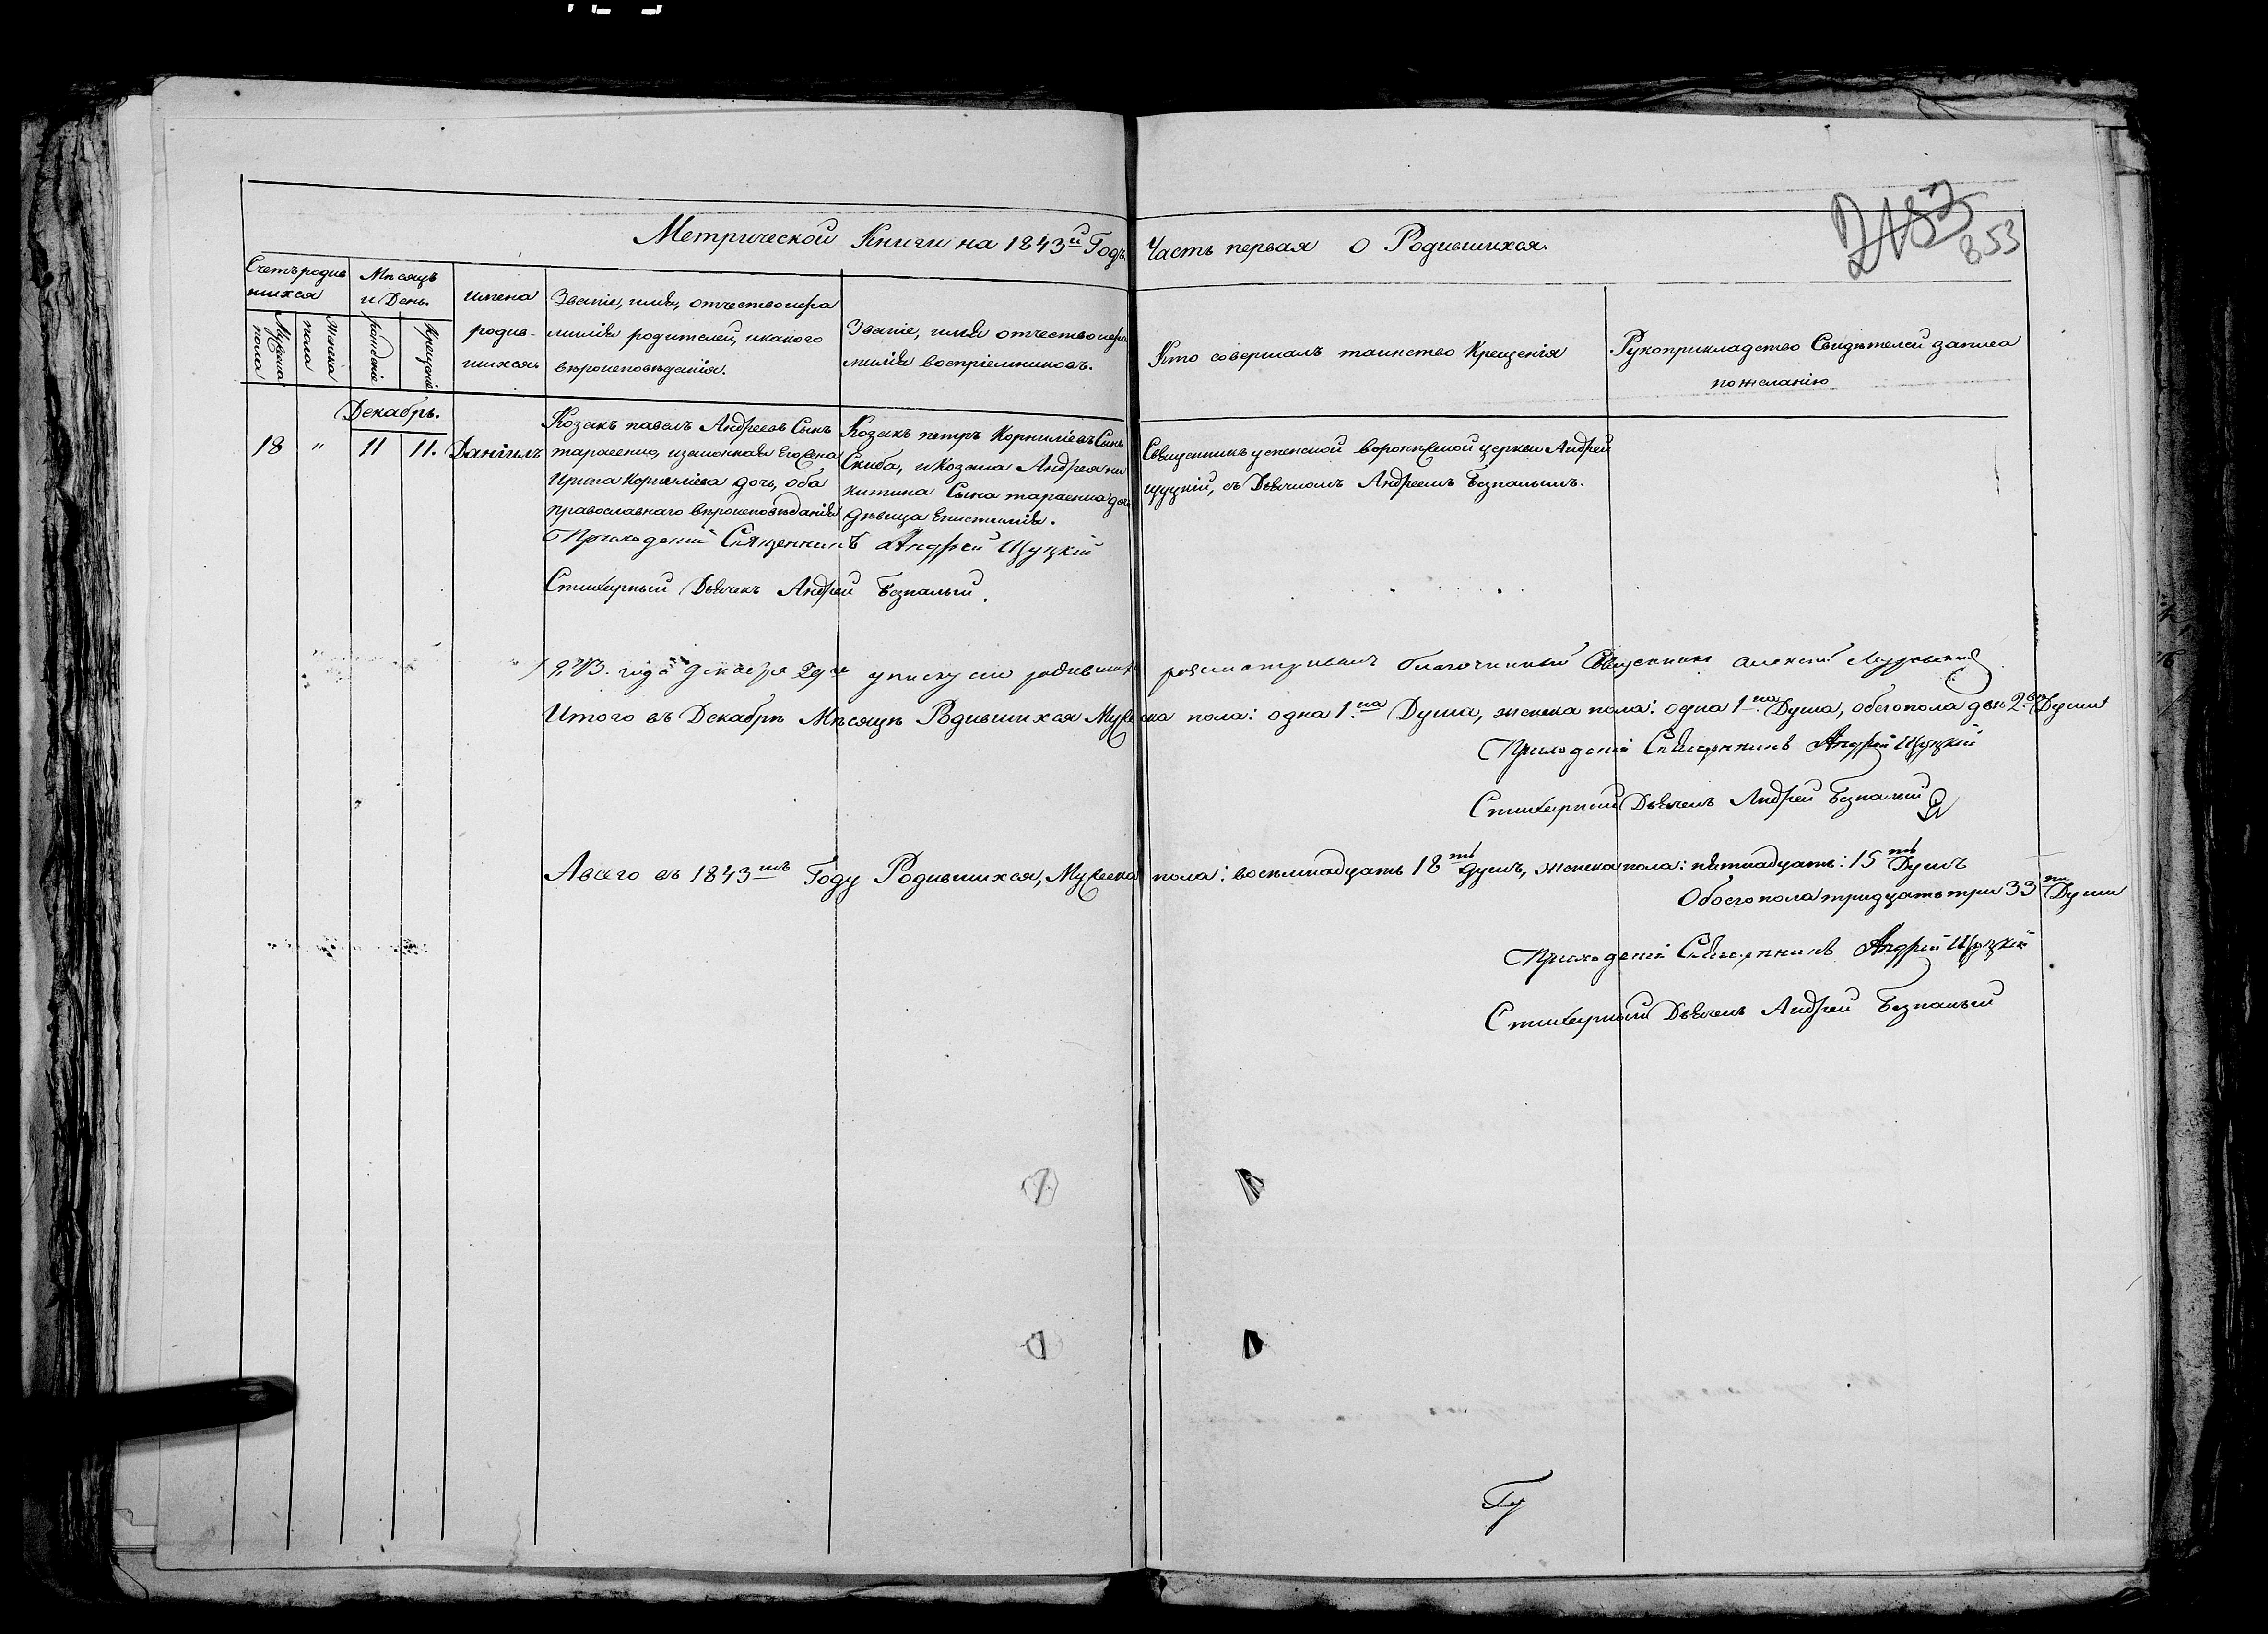 Метрической Книги на 1843й Годъ. Часть первая О Родившихся.
853
Счетъ родив
шихся
Мужеска пола
Женска пола
Мѣсяцъ
и День.
рожденіе
Крещеніе
имена
родив-
шихся
Званіе, имя, отчество и фа
милія родителей, и какого
вѣроисповѣданія.
Званіе, имя отчество и фа
милія воспріемниковъ.
Кто совершалъ таинство Крещенія
Рукоприкладство Свидѣтелей записа
по желанію
Декабрь.
18 " 11 11. Даніилъ
Козакъ павелъ Андреевъ Сынъ
тарасенко, и законная Его Жена
Ирина Корниліева дочь, оба
православнаго вѣроисповѣданія
Козакъ петръ Корниліевъ Сынъ
Скиба, и Козака Андрея ни
китина Сына тарасенка дочь
дѣвица Епистимія.
Священникъ успенской воронѣжской церкви Андрей
щуцкій, съ Дьячкомъ Андреемъ Безпалымъ.
Приходскій Священникъ Андрей Щуцкій
Стихарный Дьячекъ Андрей Безпалый.
1843. года декабря 29го у писку сию родившихъ розсматривалъ благочинный Священникъ алексей
Итого въ Декабрѣ Мѣсяцѣ Родившихся Мужеска пола: одна 1.на Душа, женска пола: одна 1.на Душа, обоего пола двѣ 2.вѣ Души
Приходскій Священникъ Андрей Щуцкій
Стихарный Дьячекъ Андрей Безпалый
А всего въ 1843мъ Году Родившихся, Мужеска пола: восемнадцать 18ть душъ, женска пола: пятнадцать: 15ть Душъ
Обоего пола тридцать три 33ри Души
Приходскій Священникъ Андрей Щуцкій
Стихарный Дьячекъ Андрей Безпалый